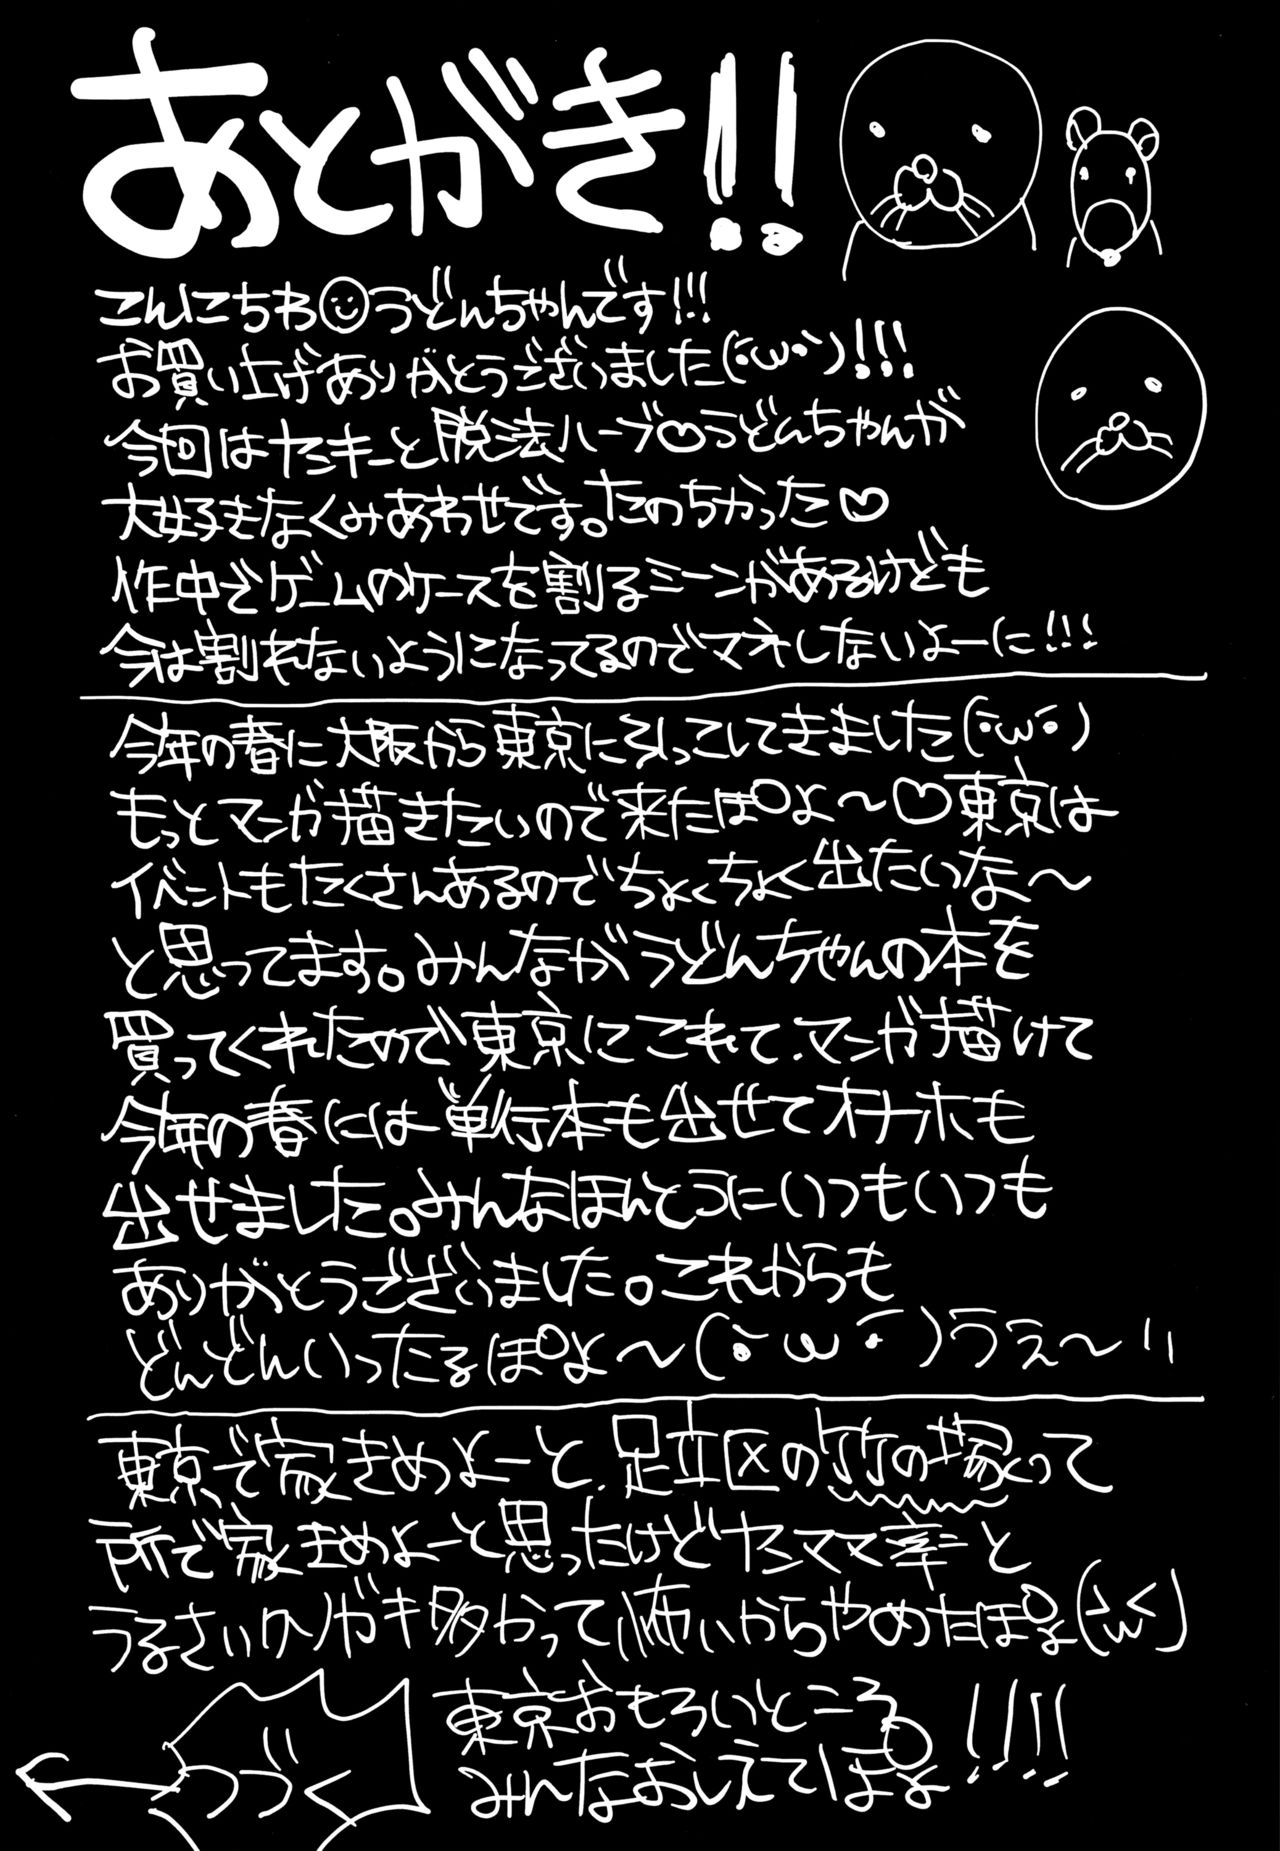 あとがき!!
こんにちわ☺うどんちゃんです!!!
お買い上げありがとうございました(•ω•)!!!
今回はヤミキーと脱法ハーブ♡うどんちゃんが
大好きなくみあわせです。たのちかった♡
作中でゲームのケースを割るシーンがあるけども
今は割れないようになってるのでマネしないよーに!!!
今年の春に大阪から東京に引っこしてきました(•ω•)
もっとマンガ描きたいので来たぽよ〜♡東京は
イベントもたくさんあるのでちょくちょく出たいな〜
と思ってます。みんながうどんちゃんの本を
買ってくれたので東京にこれて、マンガ描けて
今年の春には単行本も出せてオナホも
出せました。みんなほんとうにいつもいつも
ありがとうございました。これからも
どんどんいったるぽよ〜(•ω•)うえ〜!!
東京で家きめよーと、足立区の竹の塚って
所で家きめよーと思ったけどヤンママ率と
うるさいクソガキ多かって怖いからやめたぽよ(>ω<)
東京おもろいところ
みんなおしえてぽよ!!!!
つづく